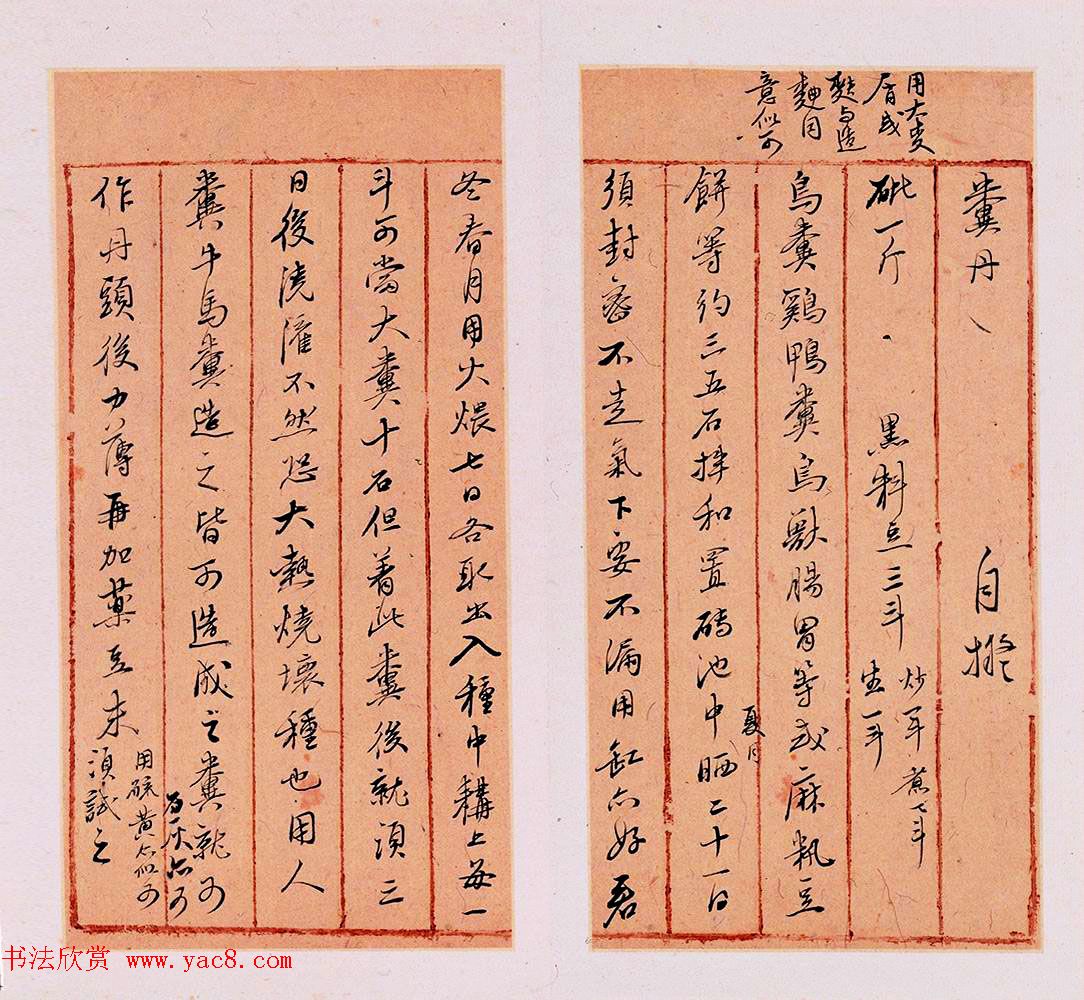 用大麦
屑或
麩与造
麯同
意似可
糞丹 自擬
砒一斤 黑料豆三斗 炒一斗 煮一斗 生一斗
鳥糞鷄鴨糞鳥獸腸胃等或麻籸豆
餅等約三五石拌和置磚池中夏月晒二十一日
須封密不走氣下要不漏用缸亦好若
冬春月用火煨七日各取出入種中耩上每一
斗可當大糞十石但着此糞後就須三
日後澆灌不然恐大熱燒壞種也用人
糞牛馬糞造之皆可造成之糞就可
作丹頭後力薄再加藥豆末 用硫黃亦似可 石灰亦可 須試之
书法欣赏 www.yac8.com